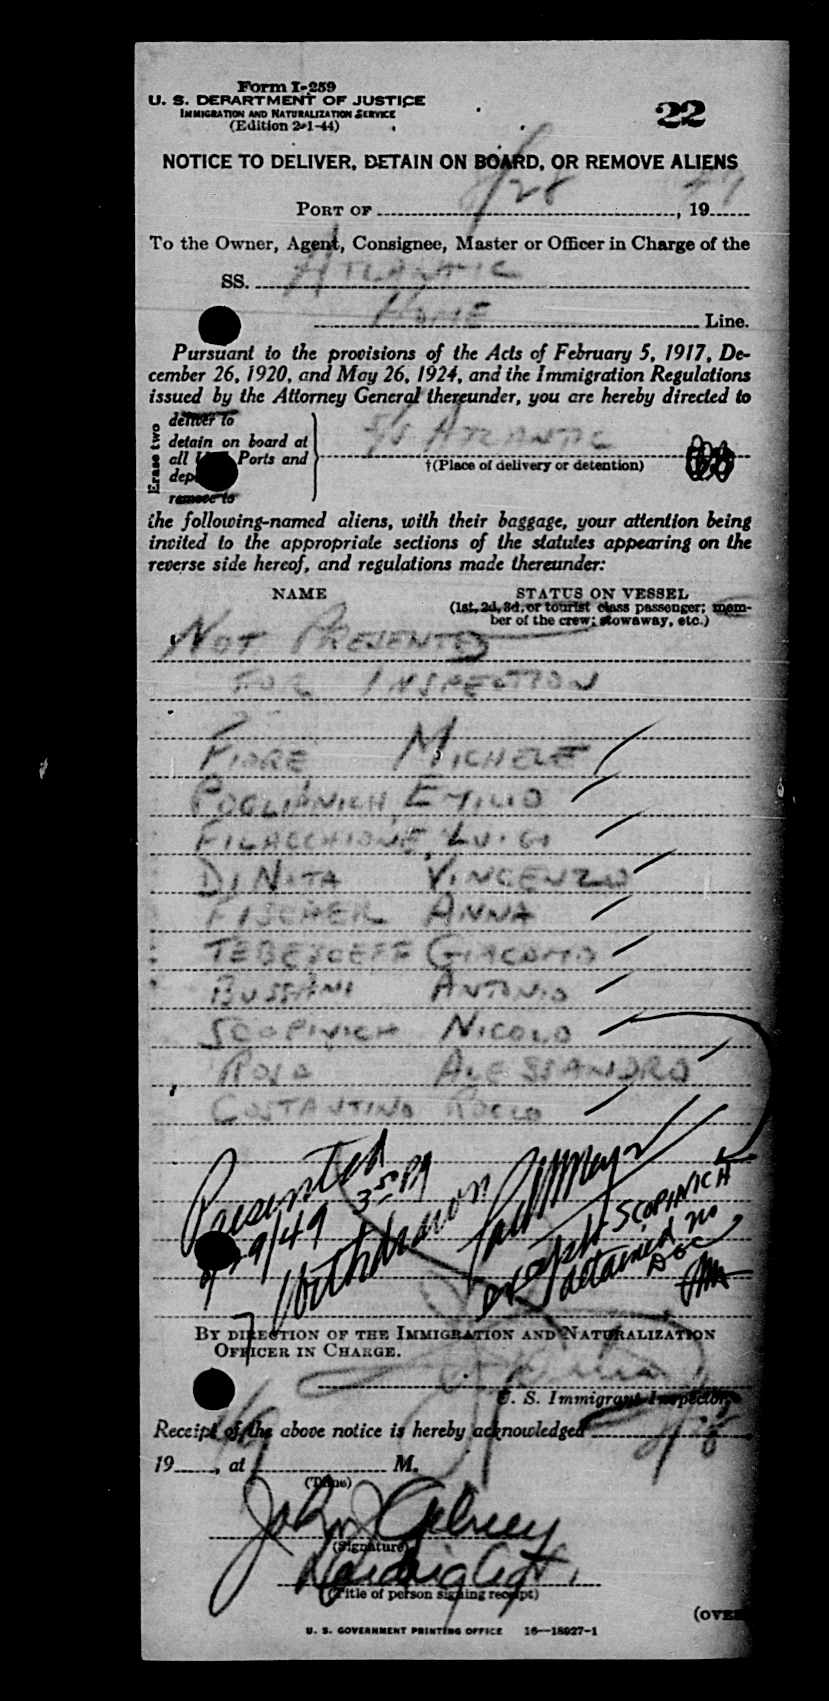 Form I-259
U. S. DEPARTMENT OF JUSTICE
IMMIGRATION AND NATURALIZATION SERVICE
(Edition 2-1-44)
22
NOTICE TO DELIVER, DETAIN ON BOARD, OR REMOVE ALIENS
PORT OF 9/28, 1949
To the Owner, Agent, Consignee, Master or Officer in Charge of the
SS. ATLANTIC
HOME Line.
Pursuant to the provisions of the Acts of February 5, 1917, De-
cember 26, 1920, and May 26, 1924, and the Immigration Regulations
issued by the Attorney General thereunder, you are hereby directed to
Erase two
deliver to
detain on board at
all Ports and
remove to
S/S ATLANTIC
†(Place of delivery or detention)
the following-named aliens, with their baggage, your attention being
invited to the appropriate sections of the statutes appearing on the
reverse side hereof, and regulations made thereunder:
NAME STATUS ON VESSEL
(1st, 2d, 3d, or tourist class passenger; mem-
ber of the crew; stowaway, etc.)
NOT PRESENTED
FOR INSPECTION
FIORE MICHELE
POGLIANICH, EMILIO
FILACCHIONE, LUIGI
DINITA VINCENZO
FISCHER ANNA
TEBESCEFF GIACOMO
BUSSANI ANTONIO
SCOPINICH NICOLO
ROSA ALESSANDRO
COSTANTINO ROCCO
Presented
9/29/49 3 25 PM
Withdrawn
except SCOPINICH
detained no
DOC
BY DIRECTION OF THE IMMIGRATION AND NATURALIZATION
OFFICER IN CHARGE.
U. S. Immigrant Inspector.
Receipt of the above notice is hereby acknowledged 9/28
1949, at M.
(Time)
John J
(Signature)
(Title of person signing receipt)
(OVER
U. S. GOVERNMENT PRINTING OFFICE 16—18927-1